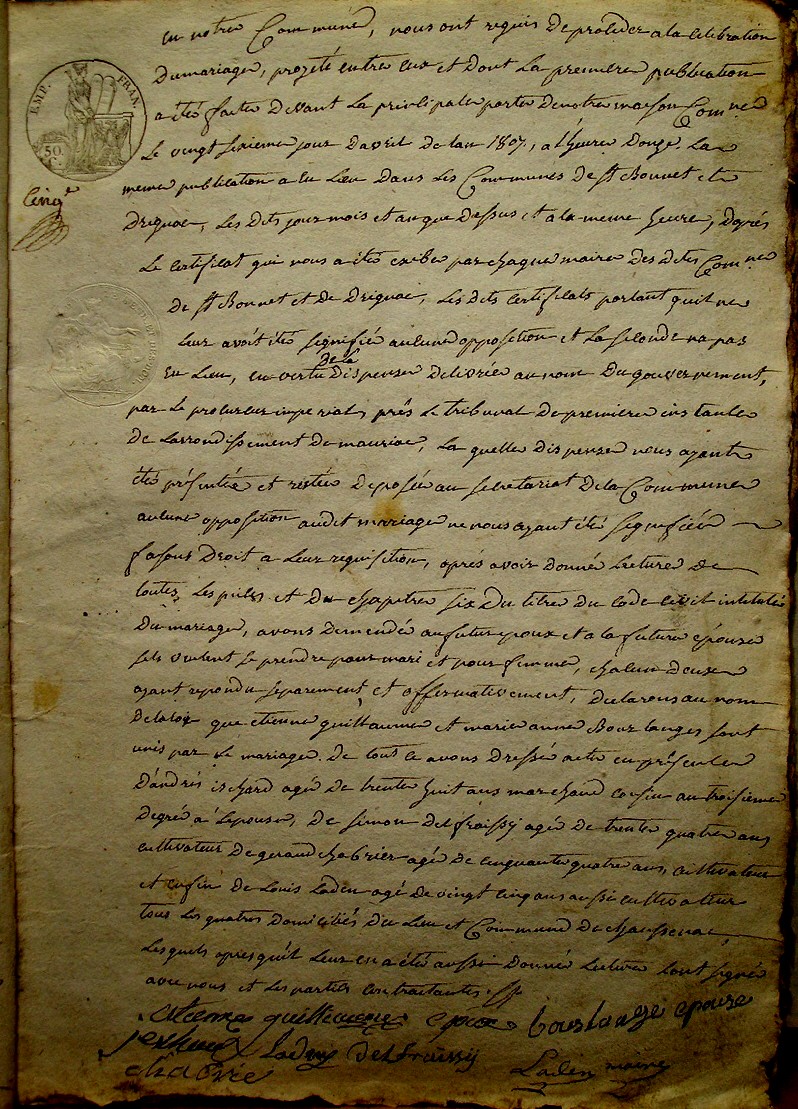 EMP. FRAN.
50
C.
Cinq.e
en notre Commune, nous ont requis de proceder a la celebration
du mariage, projeté entre eux et dont la premiere publication
a été faite devant la principale porte de notre maison Comne
le vingt sixieme jour d'avril de l'an 1807, a l'heure d'onze. La
meme publication a eu lieu dans les Communes de st Bonnet et
drignac, les dits jour mois et an que dessus et a la meme heure, daprés
le certificat qui nous a été exibé par chaque maire des dites Comnes
de st Bonnet et de drignac, les dits certificats portant quil ne
leur avoit été signifié aucune opposition et la seconde na pas
de la
eu lieu, en vertu dispense delivrée au nom du gouvernement,
par le procureur imperial, prés le tribunal de premiere instance
de larrondissement de mauriac, la quelle dispense nous ayant
été présentée et restée deposée au secretariat de la Commune
aucune opposition audit mariage ne nous ayant été signifiée
fasons droit a leur requisition, aprés avoir donné lecture de
toutes les pieces et du chapitre six du titre du code civil intitulé
du mariage, avons demendé au futur epoux et a la future epouse
sils veulent se prendre pour mari et pour femme, chacun deux
ayant repondu separement et affirmativement, declarons au nom
de la loi que etienne guillaume et marie anne Bourlanges sont
unis par le mariage. de tout ce avons dressé acte en présence
d'andrés ischard agé de trente huit ans marchand cousin au troisieme
degré a l'epouse, de simon delfraissy agé de trente quatre ans
cultivateur de gerand chabrier agé de cinquante quatre ans, cultivateur
et enfin de Louis Laden agé de vingt cinq ans aussi cultivateur
tous les quatres domiciliés du lieu et Commune de chaussenac,
lesquels apres qu'il leur en a été aussi donné lecture sont signés
avec nous et les parties contractantes.
etienne guilleaume epoux Bourlange epouse
Laden delfraissy
chabrie Laden maire